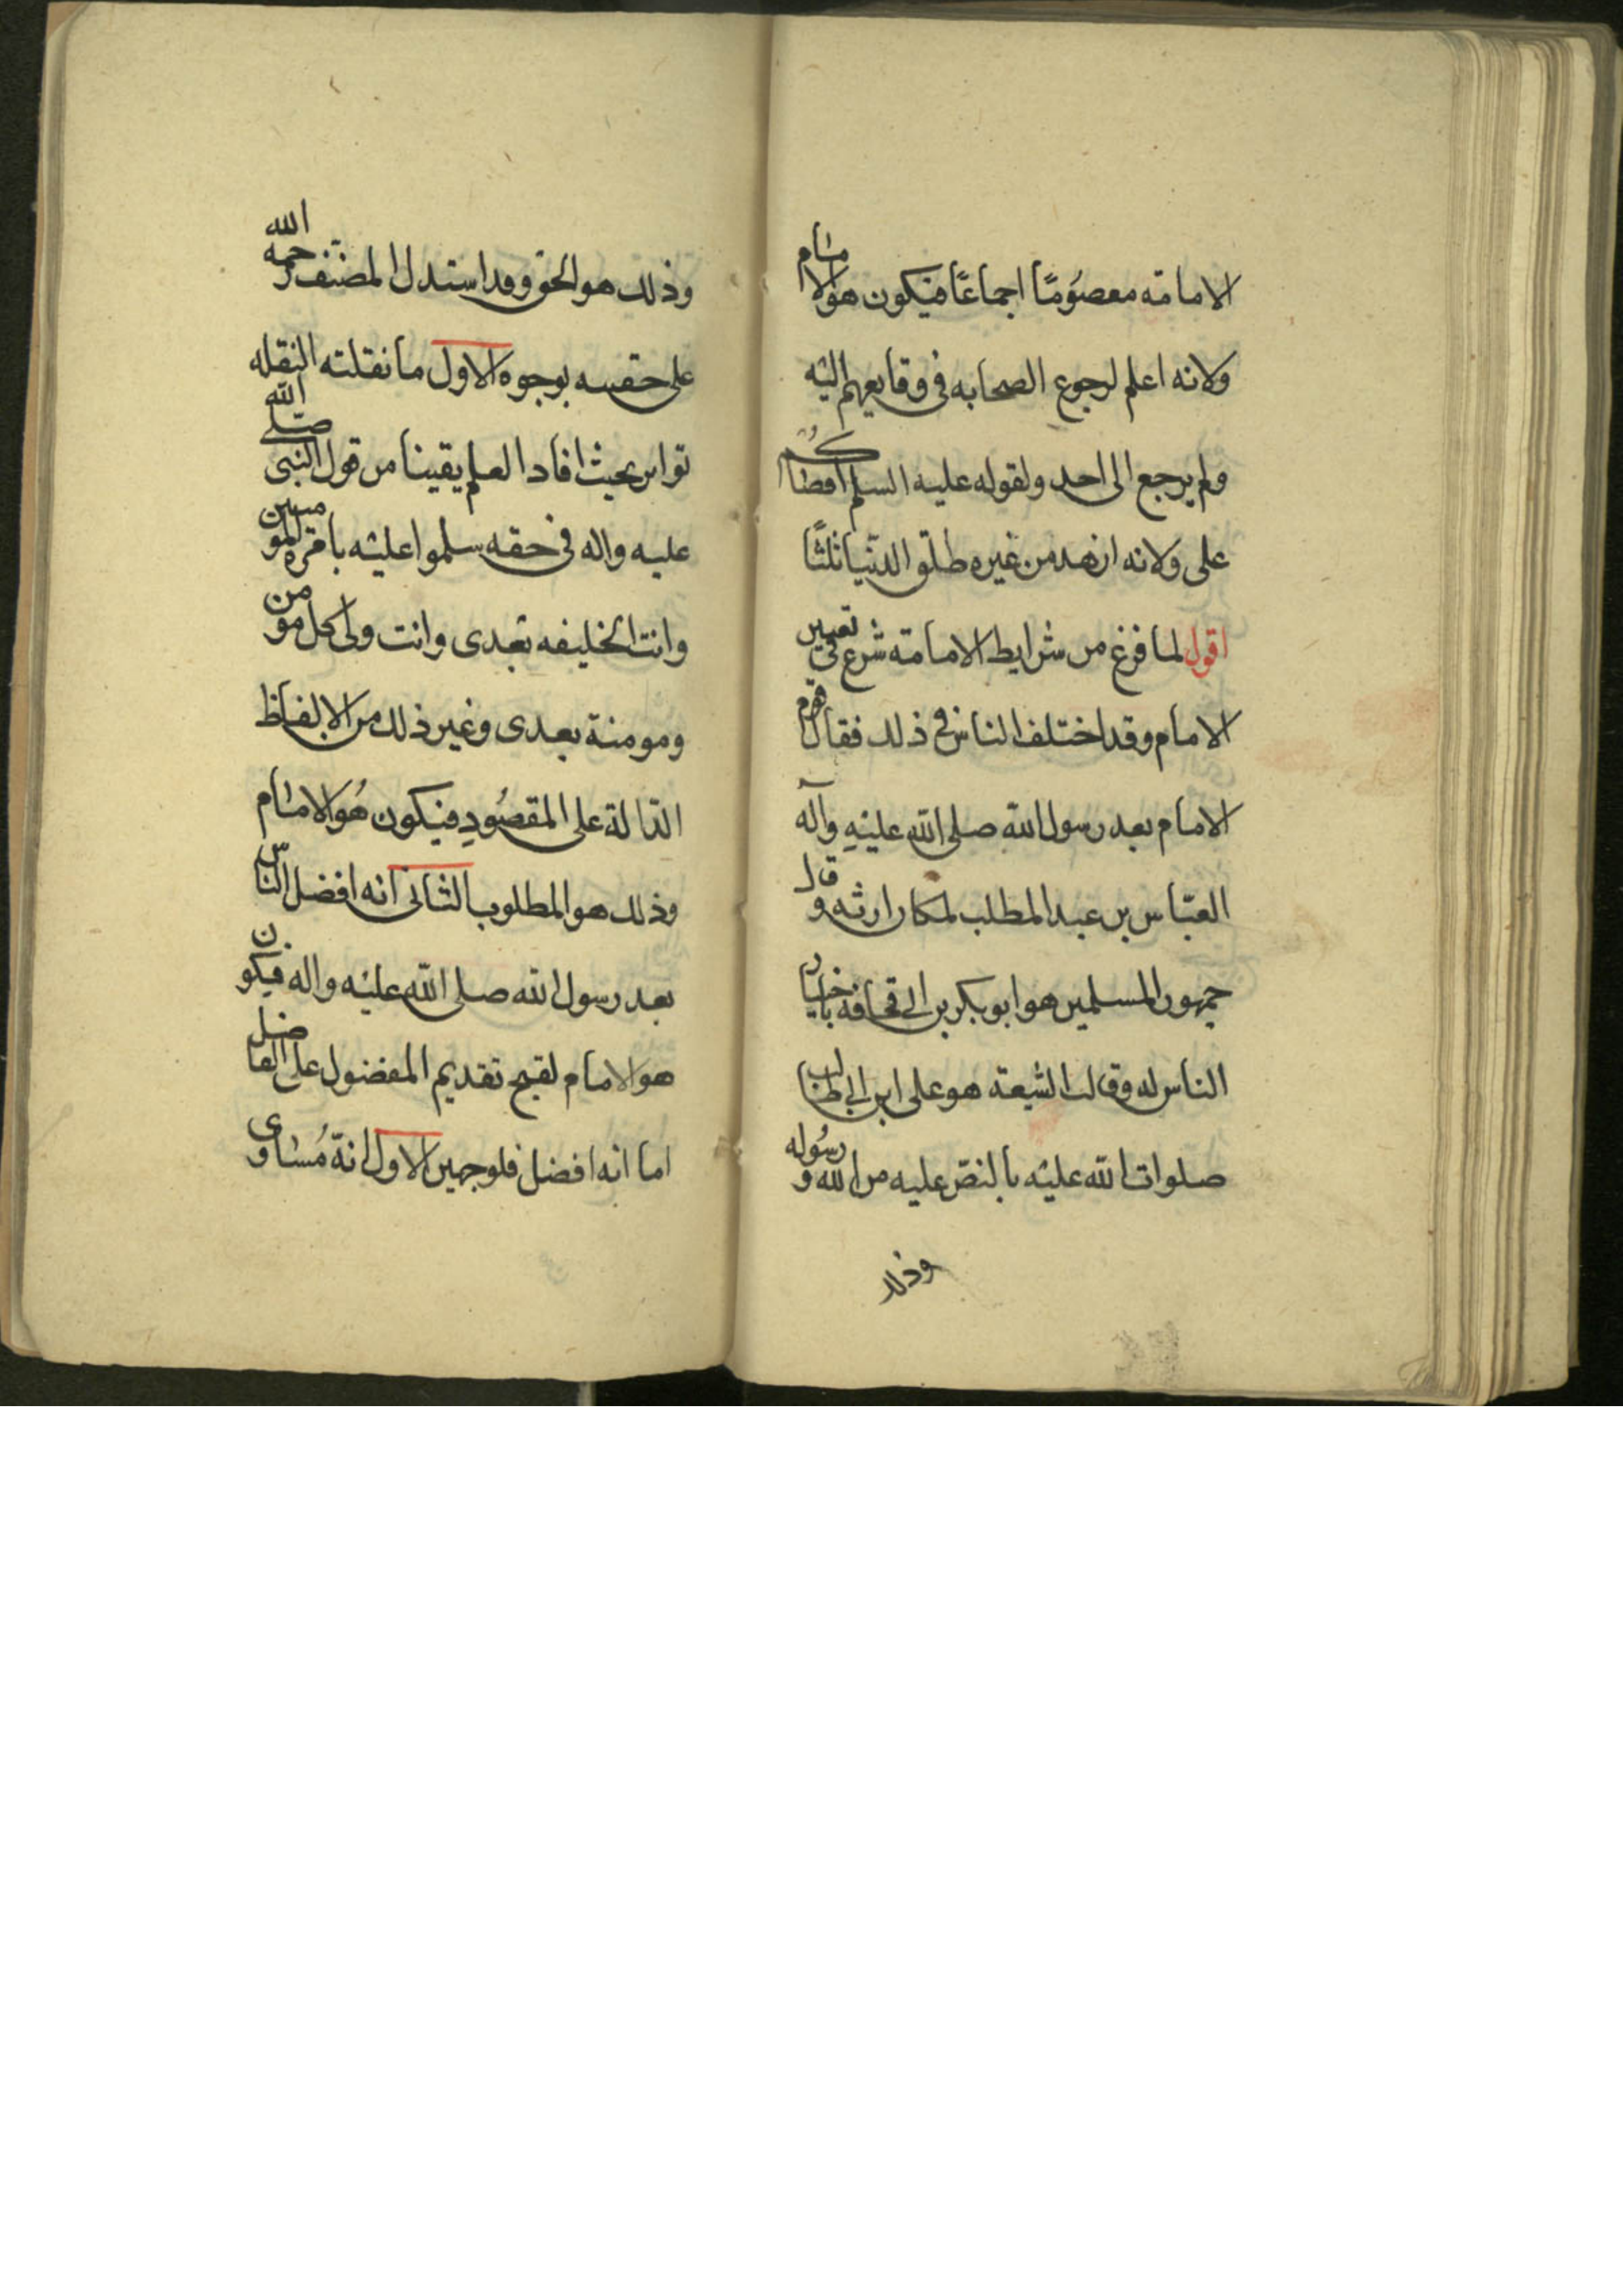 الامامة معصوما اجماعا فيكون هو الامام
ولانه اعلم لرجوع الصحابه فى وقايعهم اليه
ولم يرجع الى احد ولقوله عليه السلم اقضاكم
على ولانه ازهد من غيره طلق الدنيا ثلثا
اقول لما فرغ من شرايط الامامة شرع في تعيين
الامام وقد اختلف الناس في ذلك فقال قوم
الامام بعد رسول الله صلى الله عليه وآله
العباس بن عبد المطلب لمكان ارثه وقال
جمهور المسلمين هو ابو بكر بن ابى قحافة باختيار
الناس له وقالت الشيعة هو على ابن ابى طالب
صلوات الله عليه بالنص عليه من الله ورسوله
وذلك
وذلك هو الحق وقد استدل المصنف رحمه الله
على حقيته بوجوه الاول ما نقلته النقله
تواتر بحيث افاد العلم يقينا من قول النبى صلى الله
عليه واله فى حقه سلموا عليه بامرة المومنين
وانت الخليفه بعدى وانت ولى كل مومن
ومومنة بعدى وغير ذلك من الالفاظ
الدالة على المقصود فيكون هو الامام
وذلك هو المطلوب الثانى انه افضل الناس
بعد رسول الله صلى الله عليه واله فيكون
هو الامام لقبح تقديم المفضول على الفاضل
اما انه افضل فلوجهين الاول انه مساوى